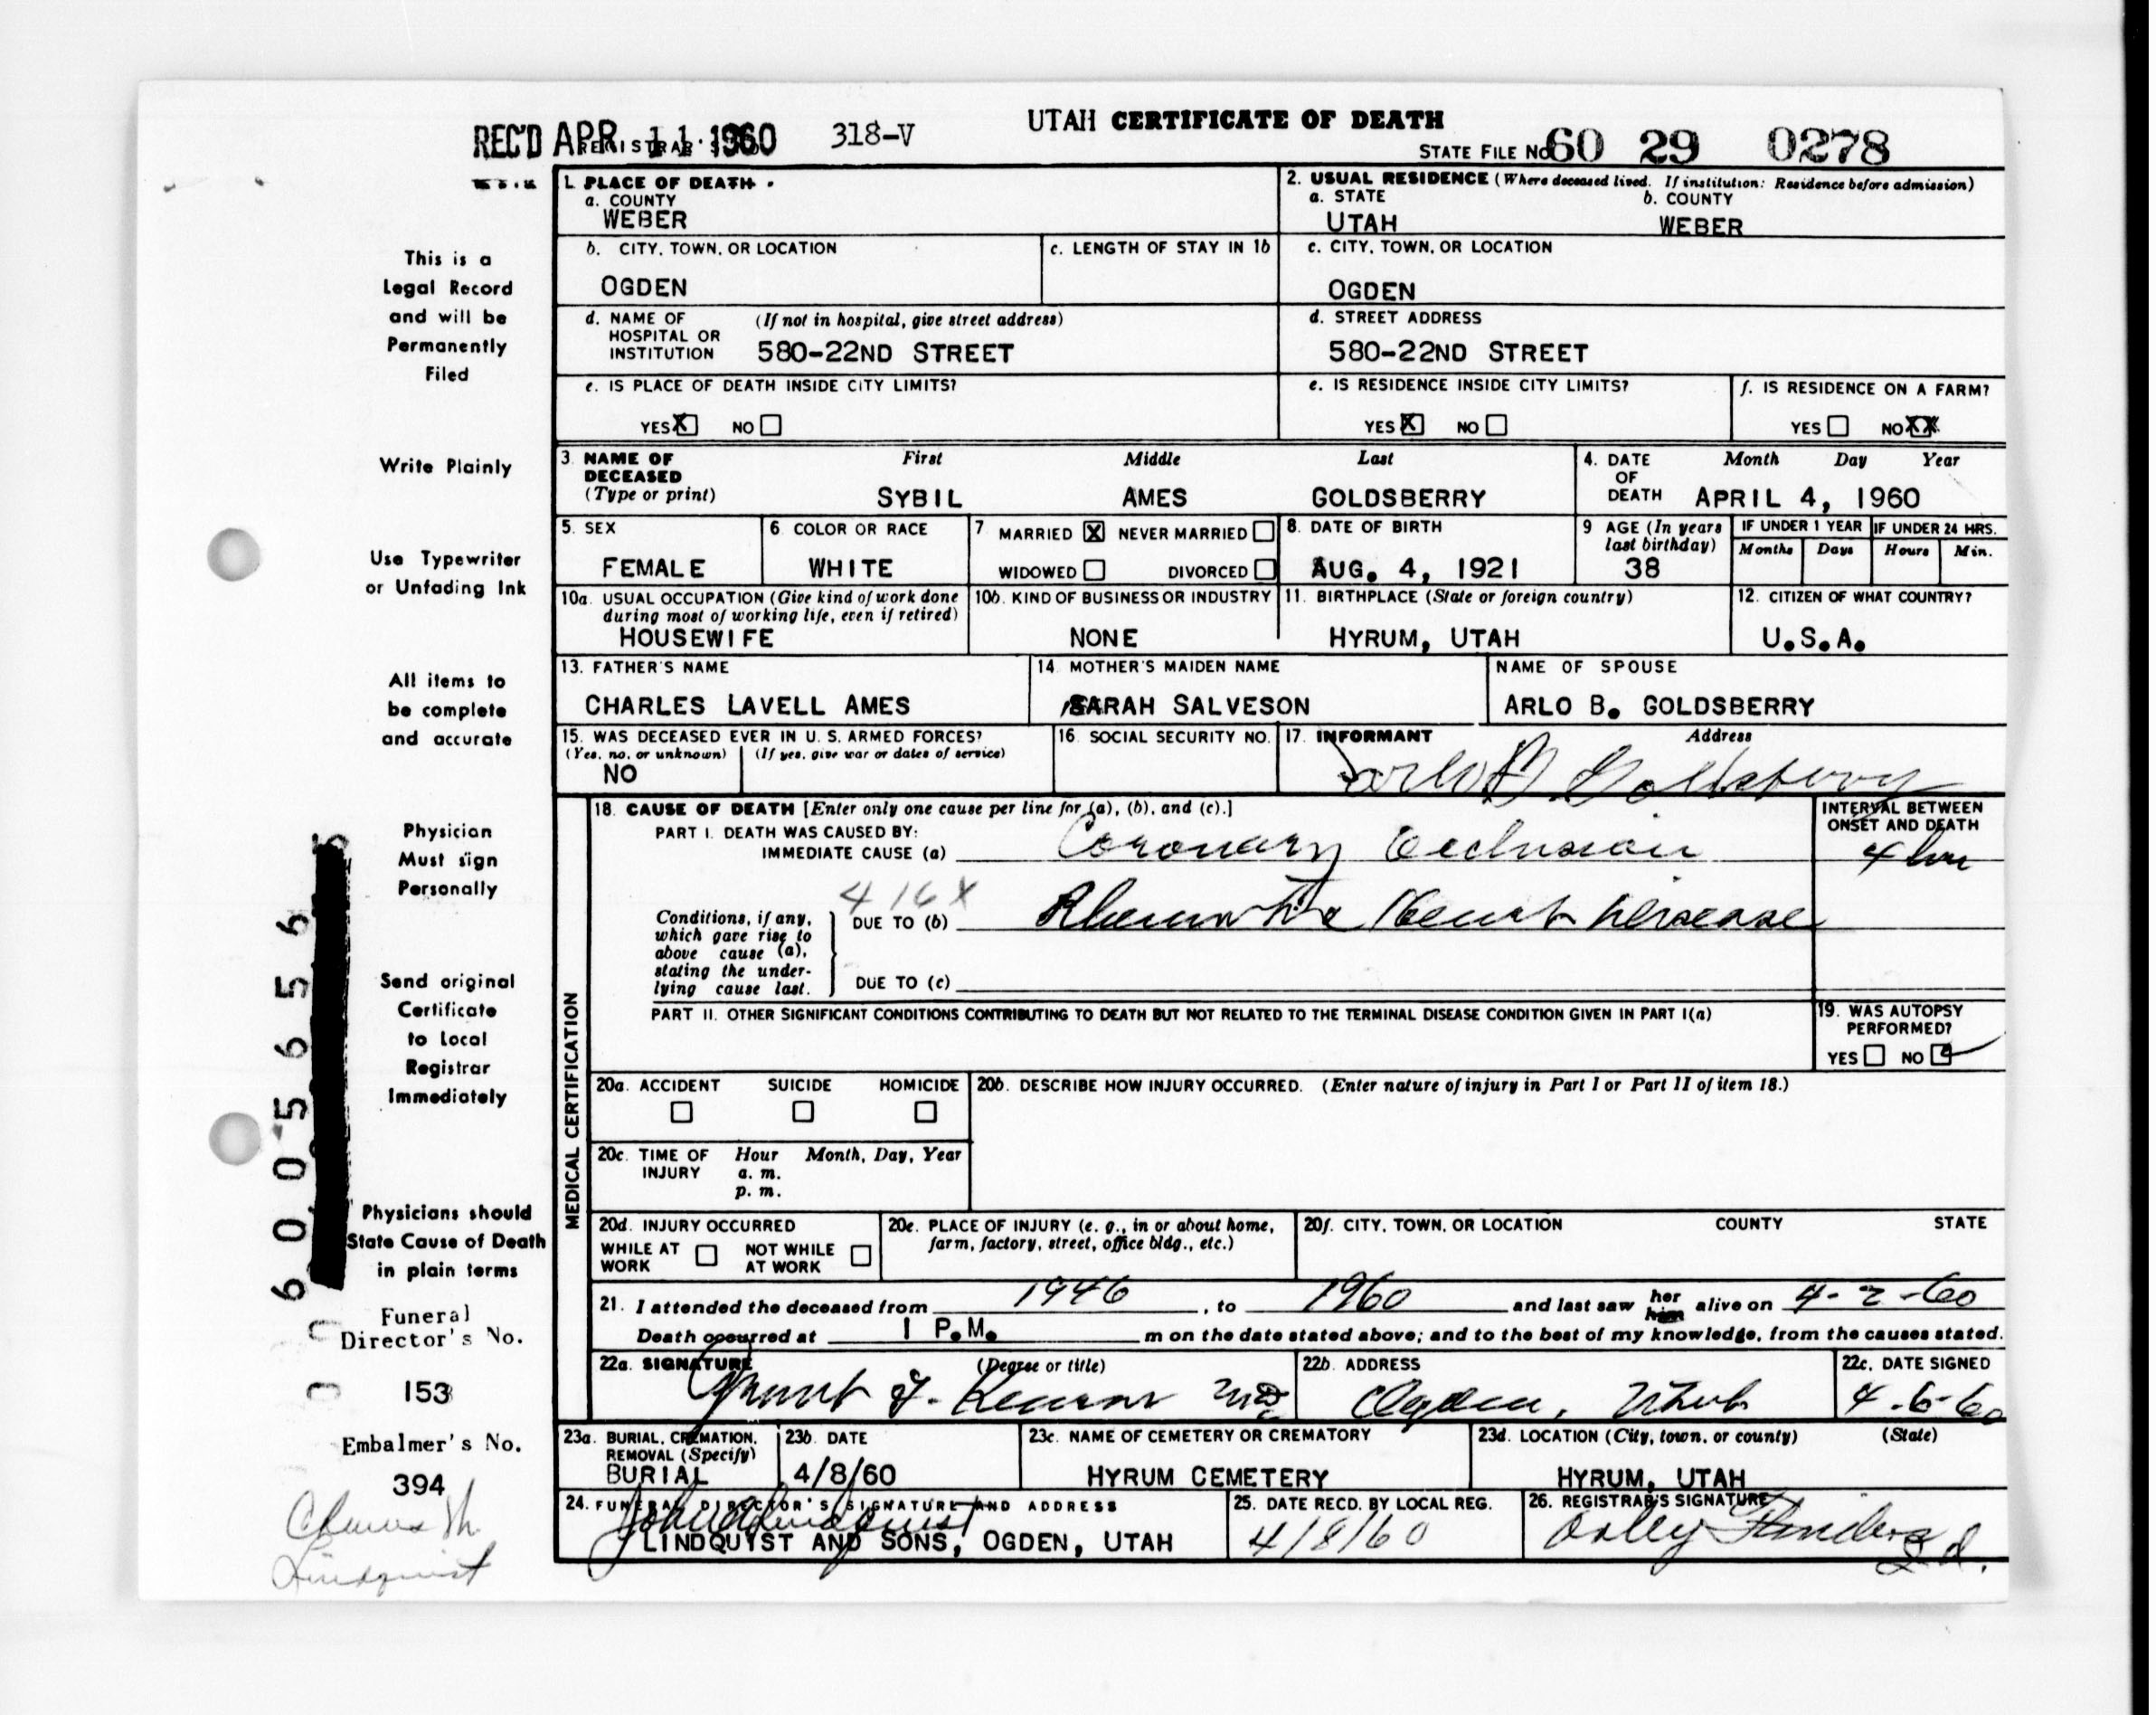 UTAH CERTIFICATE OF DEATH
REC'D APR 11 1960 318-V
STATE FILE NO. 60 29 0278
1. PLACE OF DEATH
a. COUNTY
WEBER
2. USUAL RESIDENCE (Where deceased lived. If institution: Residence before admission)
a. STATE b. COUNTY
UTAH WEBER
b. CITY, TOWN, OR LOCATION
OGDEN
c. LENGTH OF STAY IN 1b
c. CITY, TOWN, OR LOCATION
OGDEN
d. NAME OF HOSPITAL OR INSTITUTION (If not in hospital, give street address)
580-22ND STREET
d. STREET ADDRESS
580-22ND STREET
e. IS PLACE OF DEATH INSIDE CITY LIMITS?
YES X NO
e. IS RESIDENCE INSIDE CITY LIMITS?
YES X NO
f. IS RESIDENCE ON A FARM?
YES NO XX
3. NAME OF DECEASED (Type or print)
First Middle Last
SYBIL AMES GOLDSBERRY
4. DATE OF DEATH Month Day Year
APRIL 4, 1960
5. SEX
FEMALE
6 COLOR OR RACE
WHITE
7 MARRIED X NEVER MARRIED
WIDOWED DIVORCED
8. DATE OF BIRTH
AUG. 4, 1921
9 AGE (In years last birthday)
38
IF UNDER 1 YEAR IF UNDER 24 HRS.
Months Days Hours Min.
10a. USUAL OCCUPATION (Give kind of work done during most of working life, even if retired)
HOUSEWIFE
10b. KIND OF BUSINESS OR INDUSTRY
NONE
11. BIRTHPLACE (State or foreign country)
HYRUM, UTAH
12. CITIZEN OF WHAT COUNTRY?
U.S.A.
13. FATHER'S NAME
CHARLES LAVELL AMES
14 MOTHER'S MAIDEN NAME
SARAH SALVESON
NAME OF SPOUSE
ARLO B. GOLDSBERRY
15. WAS DECEASED EVER IN U. S. ARMED FORCES?
(Yes, no, or unknown) (If yes, give war or dates of service)
NO
16. SOCIAL SECURITY NO.
17. INFORMANT Address
Arlo B. Goldsberry
MEDICAL CERTIFICATION
18. CAUSE OF DEATH [Enter only one cause per line for (a), (b), and (c).]
PART I. DEATH WAS CAUSED BY:
IMMEDIATE CAUSE (a) Coronary Occlusion
INTERVAL BETWEEN ONSET AND DEATH
4 hr
416X
Conditions, if any, which gave rise to above cause (a), stating the underlying cause last.
DUE TO (b) Rheumatic Heart Disease
DUE TO (c)
PART II. OTHER SIGNIFICANT CONDITIONS CONTRIBUTING TO DEATH BUT NOT RELATED TO THE TERMINAL DISEASE CONDITION GIVEN IN PART I(a)
19. WAS AUTOPSY PERFORMED?
YES NO
20a. ACCIDENT SUICIDE HOMICIDE
20b. DESCRIBE HOW INJURY OCCURRED. (Enter nature of injury in Part I or Part II of item 18.)
20c. TIME OF INJURY Hour Month, Day, Year
a. m.
p. m.
20d. INJURY OCCURRED
WHILE AT WORK NOT WHILE AT WORK
20e. PLACE OF INJURY (e. g., in or about home, farm, factory, street, office bldg., etc.)
20f. CITY, TOWN, OR LOCATION COUNTY STATE
21. I attended the deceased from 1946, to 1960 and last saw her him alive on 4-2-60
Death occurred at 1 P.M. m on the date stated above; and to the best of my knowledge, from the causes stated.
22a. SIGNATURE (Degree or title)
Grant F. MD
22b. ADDRESS
Ogden, Utah
22c. DATE SIGNED
4-6-60
23a. BURIAL, CREMATION, REMOVAL (Specify)
BURIAL
23b. DATE
4/8/60
23c. NAME OF CEMETERY OR CREMATORY
HYRUM CEMETERY
23d. LOCATION (City, town, or county) (State)
HYRUM, UTAH
24. FUNERAL DIRECTOR'S SIGNATURE AND ADDRESS
John A Lindquist
LINDQUIST AND SONS, OGDEN, UTAH
25. DATE RECD. BY LOCAL REG.
4/8/60
26. REGISTRAR'S SIGNATURE
Flinders
This is a
Legal Record
and will be
Permanently
Filed
Write Plainly
Use Typewriter
or Unfading Ink
All items to
be complete
and accurate
Physician
Must sign
Personally
Send original
Certificate
to Local
Registrar
Immediately
Physicians should
State Cause of Death
in plain terms
Funeral
Director's No.
153
Embalmer's No.
394
Charles M.
Lindquist